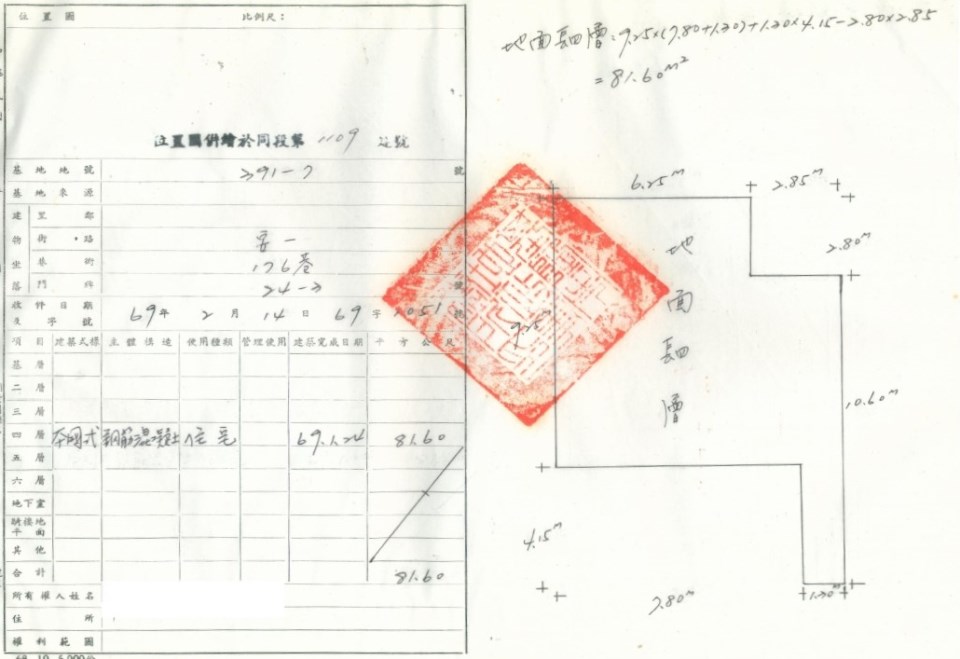 位置圖 比例尺：
位置圖併繪於同段第 1109 建號
基地地號 391-7 號
基地來源
建物坐落
里 鄰
街・路 安一
巷 衖 176巷
門牌 號
收件日期及字號 69年 2月 14日 69字 2051號
項目 建築式樣 主體構造 使用種類 管理使用 建築完成日期 平方公尺
基層
二層
三層
四層 本國式 鋼筋混凝土 住宅 69.1.24 81.60
五層
六層
地下室
騎樓地平面
其他
合計 81.60
所有權人姓名
住所
權利範圍
地面第四層：9.25×(7.80+1.30)+1.30×4.15-2.80×2.85
=81.60m²
6.25m
2.85m
2.80m
地面第四層
9.25m
10.60m
4.15m
7.80m
1.30m